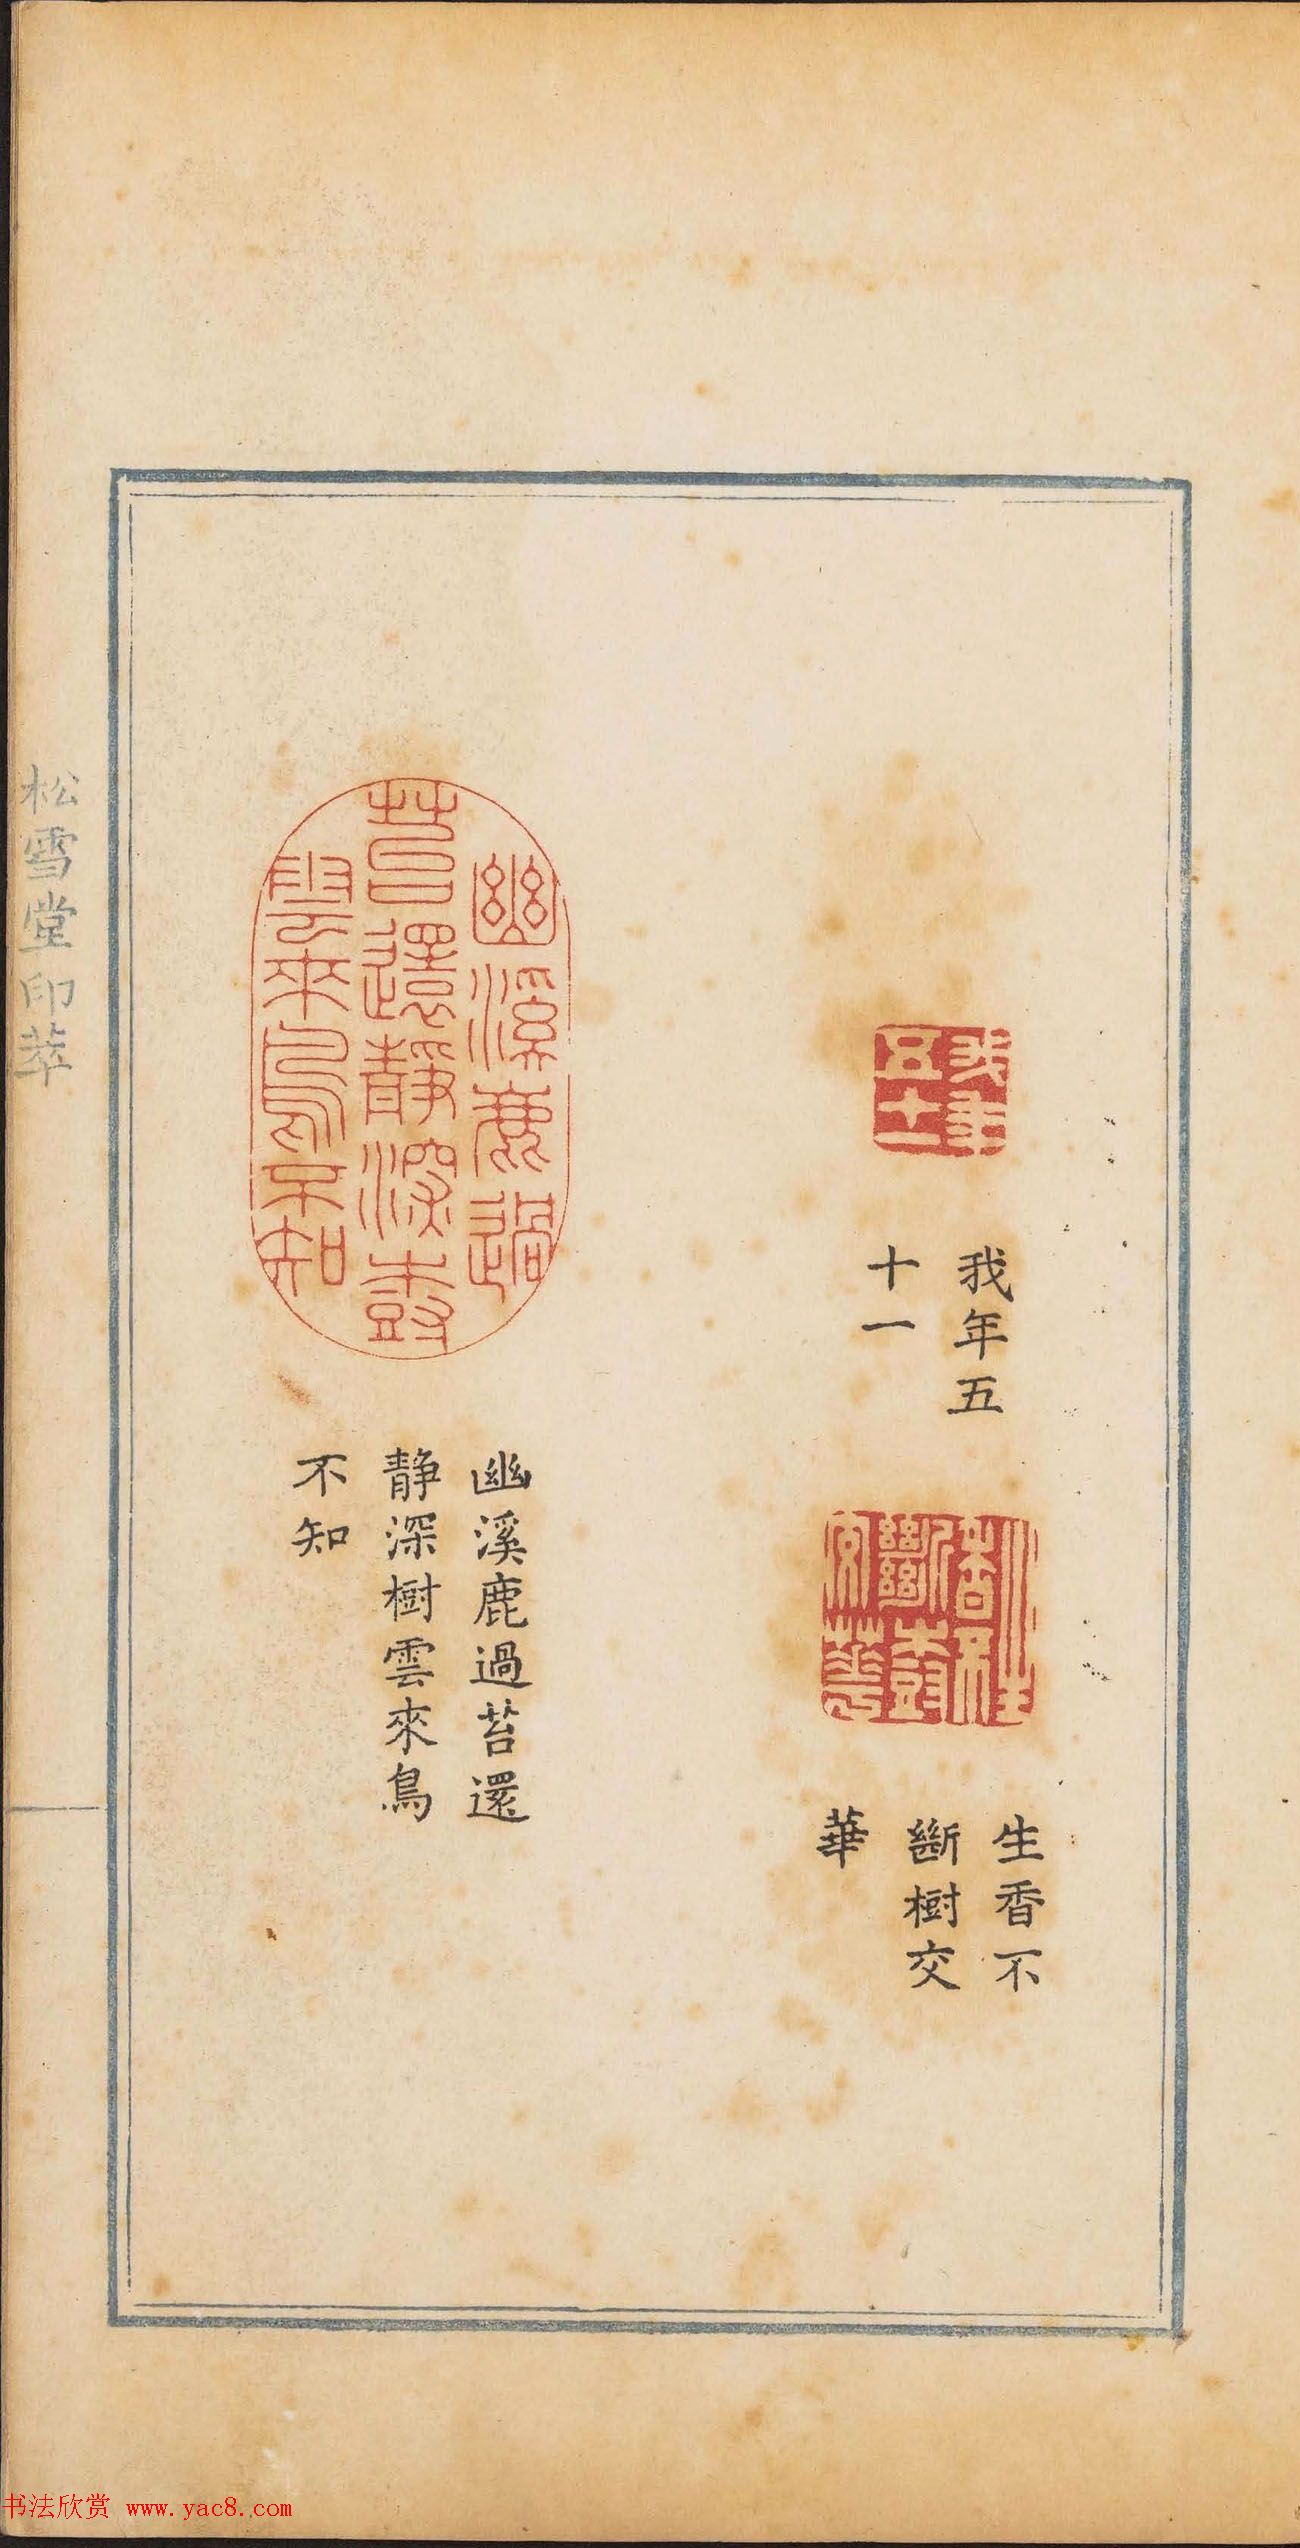 我年
五十一
我年五
十一
生香不
斷樹
交華
生香不
斷樹交
華
幽溪鹿過
苔還靜深樹
雲來鳥不知
幽溪鹿過苔還
靜深樹雲來鳥
不知
松雪堂印萃
书法欣赏 www.yac8.com